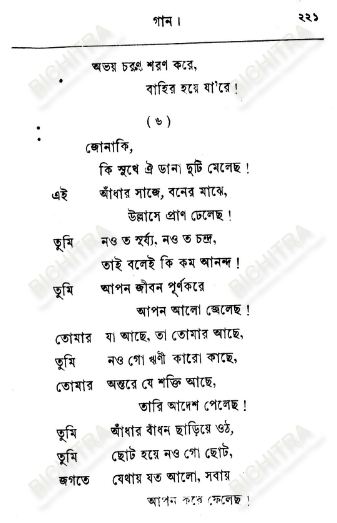 গান।
২২১
অভয় চরণ শরণ করে,
বাহির হয়ে যা'রে!
(৬)
জোনাকি,
কি সুখে ঐ ডানা দুটি মেলেছ!
এই আঁধার সাজে, বনের মাঝে,
উল্লাসে প্রাণ ঢেলেছ!
তুমি নও ত সূর্য্য, নও ত চন্দ্র,
তাই বলেই কি কম আনন্দ!
তুমি আপন জীবন পূর্ণকরে
আপন আলো জেলেছ!
তোমার যা আছে, তা তোমার আছে,
তুমি নও গো ঋণী কারো কাছে,
তোমার অন্তরে যে শক্তি আছে,
তারি আদেশ পেলেছ!
তুমি আঁধার বাঁধন ছাড়িয়ে ওঠ,
তুমি ছোট হয়ে নও গো ছোট,
জগতে যেথায় যত আলো, সবায়
আপন করে ফেলেছ!
BICHITRA
BICHITRA
BICHITRA
BICHITRA
BICHITRA